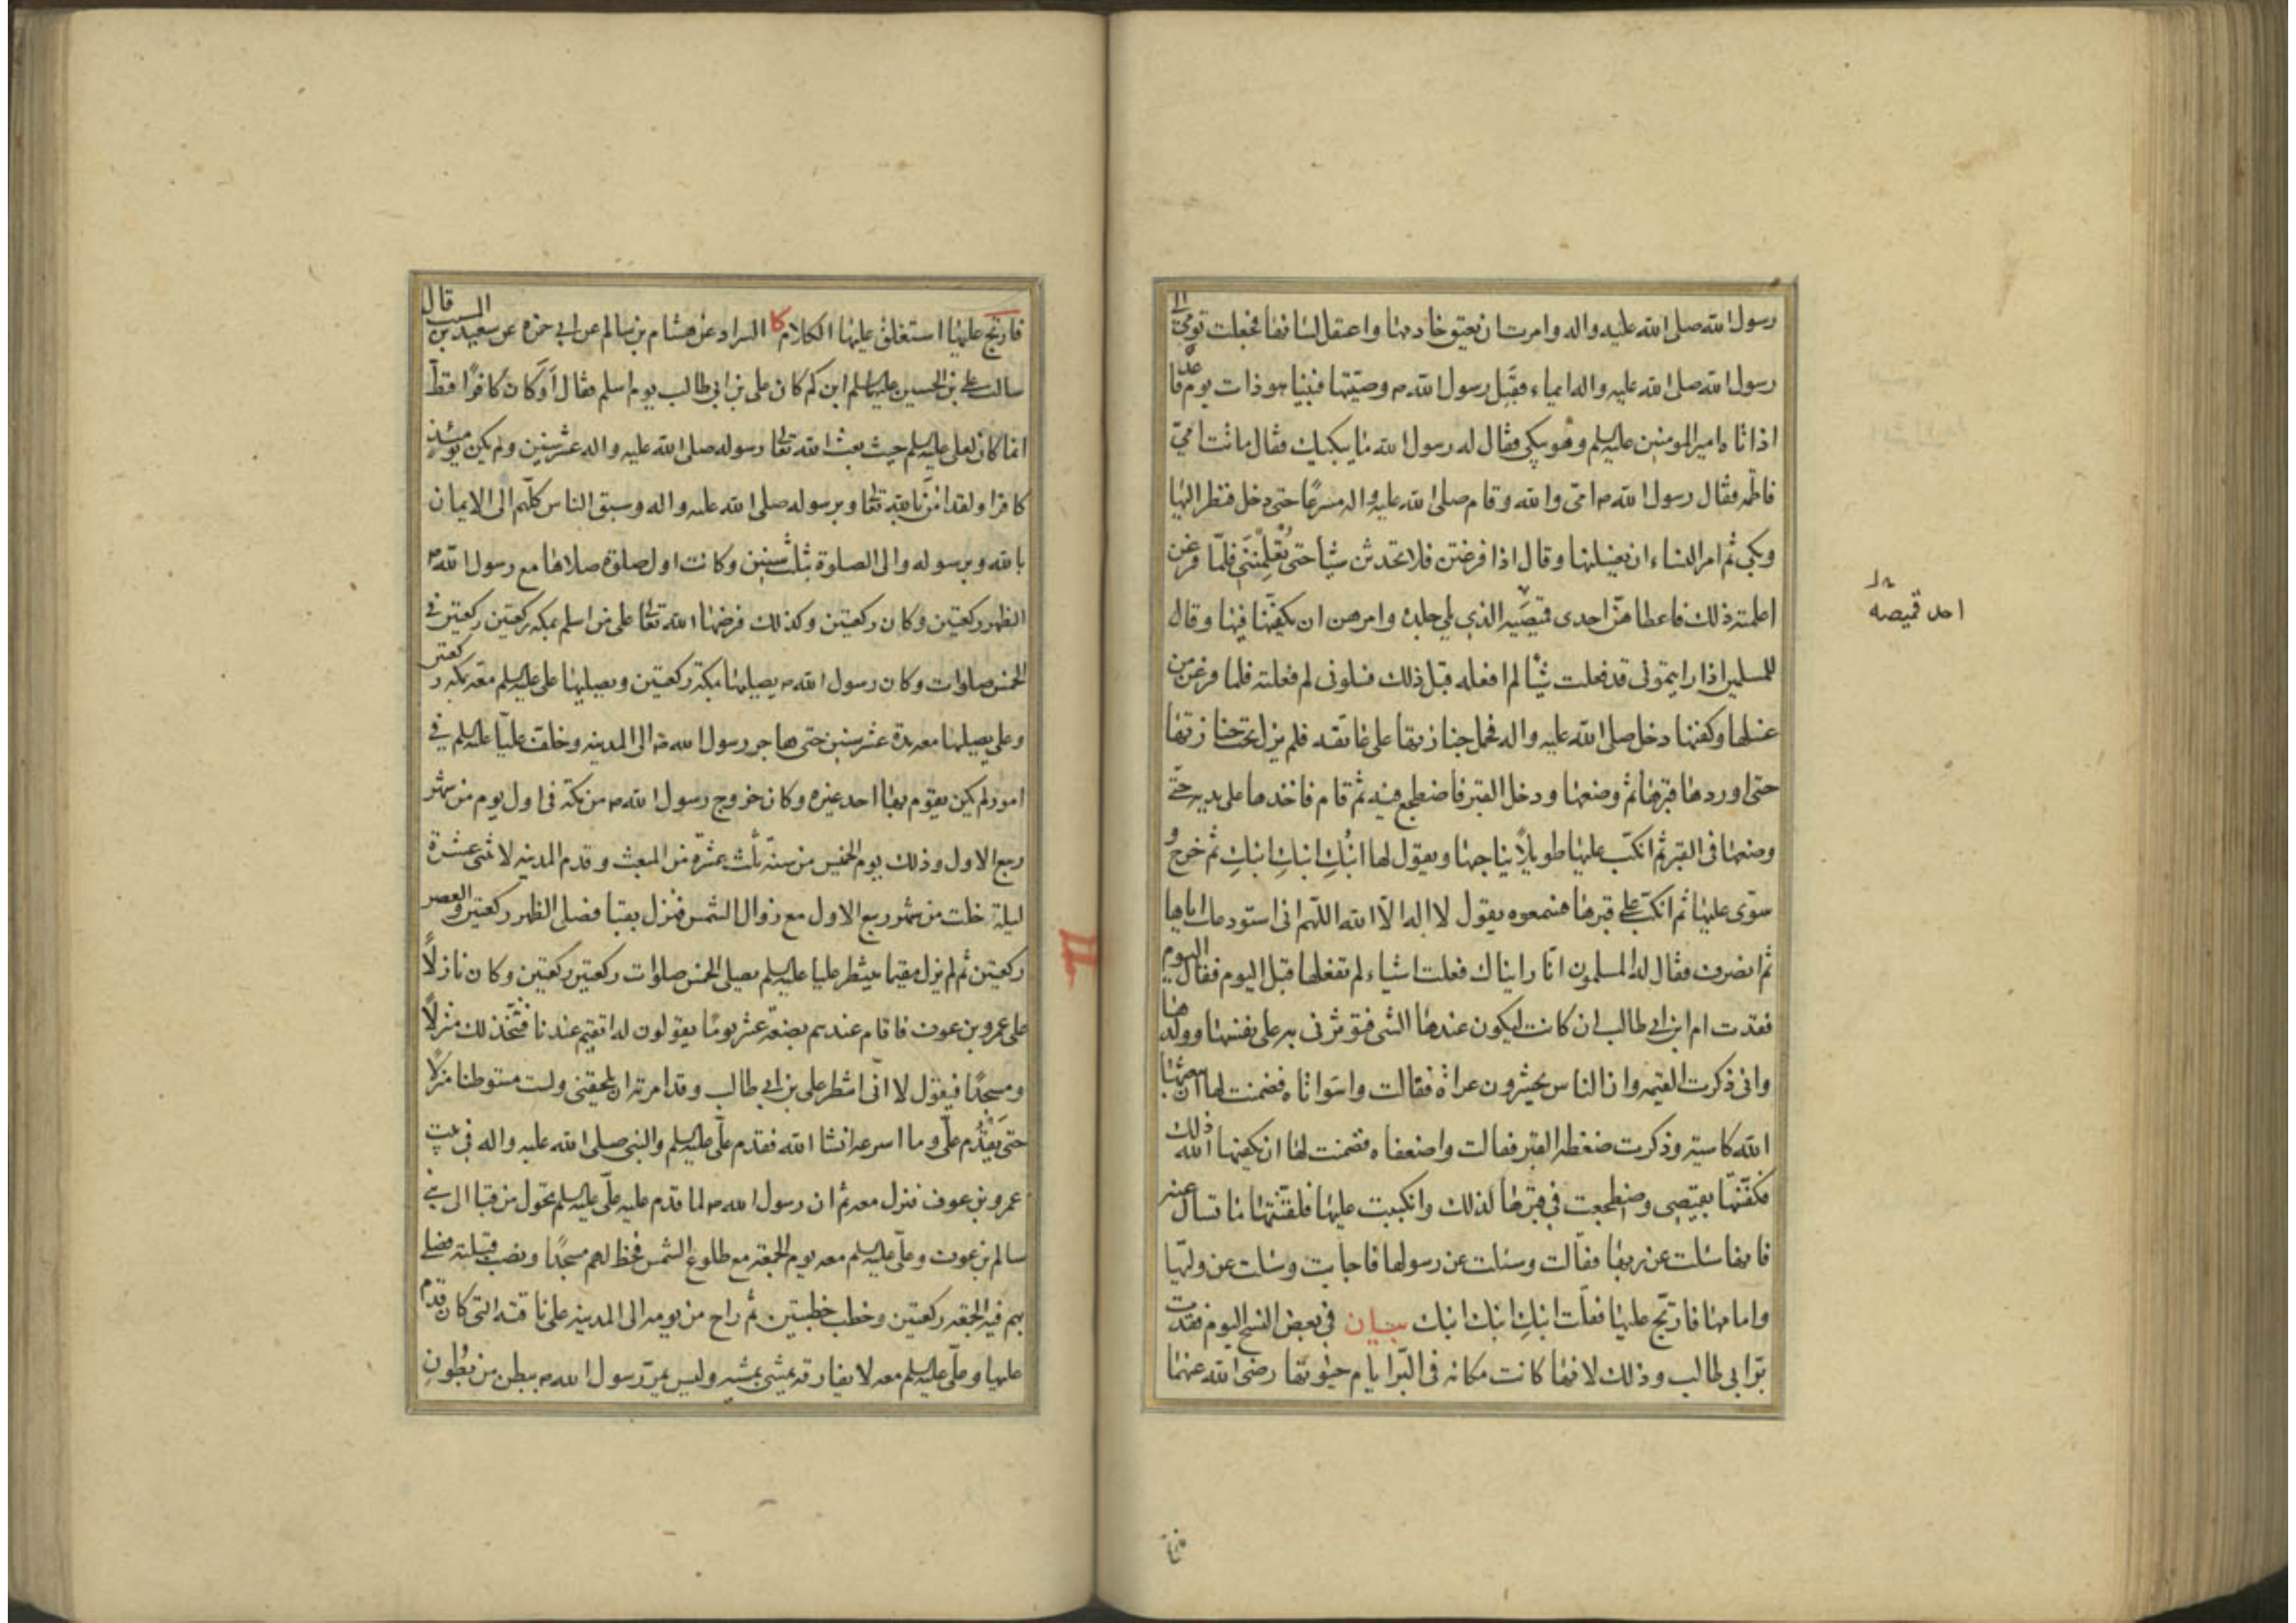 رسول الله صلى الله عليه واله وامرت ان يعتق خادمها واعتقل لسانها فجعلت تومي الى
رسول الله صلى الله عليه واله ايماء فقبل رسول الله ص وصيتها فبينا هو ذات يوم قاعد
اذ اتاه امير المومنين عليه السلم وهو يبكي فقال له رسول الله ما يبكيك فقال ماتت امي
فاطمه فقال رسول الله ص امي والله وقام صلى الله عليه واله مسرعا حتى دخل فنظر اليها
وبكى ثم امر النساء ان يغسلنها وقال اذا فرغتن فلا تحدثن شيئا حتى تعلمنني فلما فرغن
اعلمنه ذلك فاعطاهن احدى قميصيه الذي يلي جلده وامرهن ان يكفنها فيها وقال
للمسلمين اذا رايتموني قد فعلت شيئا لم افعله قبل ذلك فسلوني لم فعلته فلما فرغن من
غسلها وكفنها دخل صلى الله عليه واله فحمل جنازتها على عاتقه فلم يزل تحت جنازتها
حتى اوردها قبرها ثم وضعها ودخل القبر فاضطجع فيه ثم قام فاخذها على يديه حتى
وضعها في القبر ثم انكب عليها طويلا يناجيها ويقول لها ابنُكِ ابنكِ ابنكِ ثم خرج و
سوى عليها ثم انكب على قبرها فسمعوه يقول لا اله الا الله اللهم اني استودعك اياها
ثم انصرف فقال له المسلمون انا رايناك فعلت اشياء لم تفعلها قبل اليوم فقال اليوم
فقدت ام ابن ابي طالب ان كانت ليكون عندها الشي فتوثرني به على نفسها وولدها
واني ذكرت القيمه وان الناس يحشرون عراة فقالت واسواتاه فضمنت لها ان يبعثها
الله كاسية وذكرت ضغطه القبر فقالت واضعفاه فضمنت لها ان يكفيها الله ذلك
فكفنتها بقميصي واضطجعت في قبرها لذلك وانكببت عليها فلقنتها ما تسال عنه
فانها سئلت عن ربها فقالت وسئلت عن رسولها فاجابت وسئلت عن وليها
وامامها فارتج عليها فقلت ابنكِ ابنك ابنك بيان في بعض النسخ اليوم فقدت
بر ابي طالب وذلك لانها كانت مكانه في البر ايام حيوتها رضى الله عنهما
احد قميصه
فارتج عليها استغلق عليها الكلام كا السراد عن هشام بن سالم عن ابي حمزه عن سعيد بن المسيب قال
سالت على بن الحسين عليهما السلم ابن كم كان علي بن ابي طالب يوم اسلم فقال اَوَكان كافرا قط
انما كان لعلي عليه السلم حيث بعث الله تعالى رسوله صلى الله عليه واله عشر سنين ولم يكن يومئذ
كافرا ولقد امن بالله تعالى وبرسوله صلى الله عليه واله وسبق الناس كلهم الى الايمان
بالله وبرسوله والى الصلوة بثلث سنين وكانت اول صلوة صلاها مع رسول الله ص
الظهر ركعتين وكان ركعتين وكذلك فرضها الله تعالى على من اسلم بمكه ركعتين ركعتين في
الخمس صلوات وكان رسول الله ص يصليها بمكة ركعتين ويصليها على عليه السلم معه بمكه ركعتين
وعلى يصليها معه مدة عشر سنين حتى هاجر رسول الله ص الى المدينه وخلف عليا عليه السلم في
امور لم يكن يقوم بها احد غيره وكان خروج رسول الله ص من مكة في اول يوم من شهر
ربيع الاول وذلك يوم الخميس من سنة ثلث عشرة من المبعث وقدم المدينه لاثنتى عشرة
ليلة خلت من شهر ربيع الاول مع زوال الشمس فنزل بقبا فصلى الظهر ركعتين والعصر
ركعتين ثم لم يزل مقيما ينتظر عليا عليه السلم يصلى الخمس صلوات ركعتين ركعتين وكان نازلا
على عمرو بن عوف فاقام عندهم بضعة عشر يوما يقولون له اتقيم عندنا فنتخذ لك منزلا
ومسجدا فيقول لا اني انتظر على بن ابي طالب وقد امرته ان يلحقني ولست مستوطنا منزلا
حتى يَقْدُم على وما اسرعه انشا الله فقدم على عليه السلم والنبي صلى الله عليه واله في بيت
عمرو بن عوف فنزل معه ثم ان رسول الله ص لما قدم عليه علي عليه السلم تحول من قبا الى بني
سالم بن عوف وعلى عليه السلم معه يوم الجمعة مع طلوع الشمس فخط لهم مسجدا ونصب قبلته فصلى
بهم فيه الجمعة ركعتين وخطب خطبتين ثم راح من يومه الى المدينه على ناقته التي كان قدم
عليها وعلى عليه السلم معه لا يفارقه يمشي بمشيه وليس يمر رسول الله ص ببطن من بطون